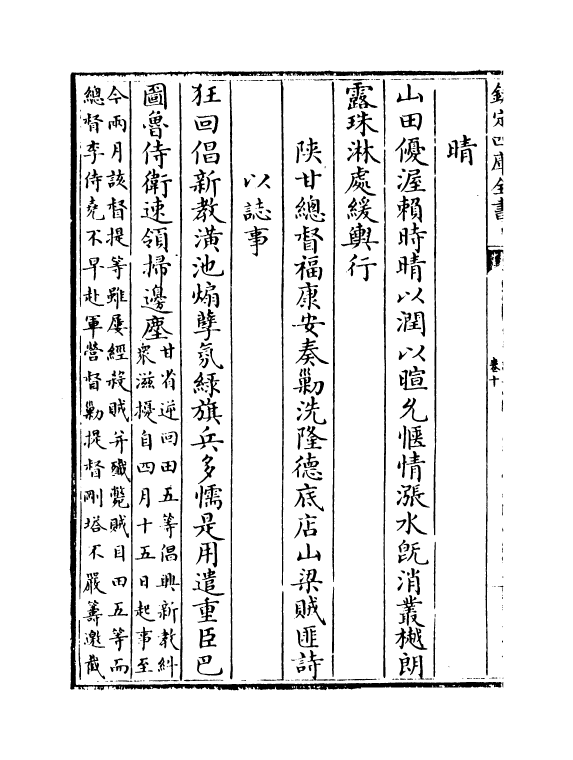 欽定四庫全書
卷十
晴
山田優渥賴時晴以潤以暄允愜情漲水既消叢樾朗
露珠淋處緩輿行
陝甘總督福康安奏勦洗隆德底店山梁賊匪詩
以誌事
狂回倡新教潢池煽孽氛綠旗兵多懦是用遣重臣巴
圖魯侍衛速領掃邊塵甘省逆回田五等倡興新教糾
衆滋擾自四月十五日起事至
今兩月該督提等雖屢經殺賊并殲斃賊目田五等而
總督李侍堯不早赴軍營督勦提督剛塔不嚴籌邀截